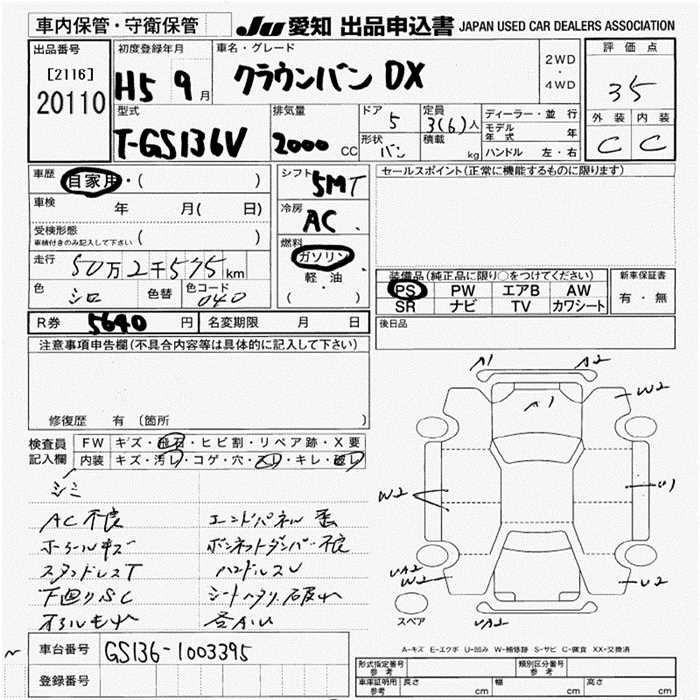 車内保管・守衛保管 JU 愛知 出品申込書 JAPAN USED CAR DEALERS ASSOCIATION
出品番号 初度登録年月 車名・グレード 2WD・4WD 評価点
[2116] H5 9月 クラウンバン DX 35
20110
型式 排気量 ドア 定員 ディーラー・並行 外装 内装
T-GS136V 2000 CC 5 3(6)人 モデル年式 年 C C
形状 バン 積載 kg ハンドル 左・右
車歴 自家用・( ) シフト 5MT セールスポイント(正常に機能するものに限ります)
車検 年 月( 日) 冷房 AC
受検形態 車検付きのみ記入して下さい ( ) 燃料 ガソリン
走行 50万2千575km 軽油 装備品(純正品に限り○をつけてください) 新車保証書
色 シロ 色替 色コード 040 ( ) PS PW エアB AW 有・無
SR ナビ TV カワシート
R券 5640 円 名変期限 月 日 後日品
注意事項申告欄(不具合内容等は具体的に記入して下さい)
A1 A2
A1 W2
修復歴 有 〔箇所 〕
検査員 FW キズ・飛石・ヒビ割・リペア跡・X要
記入欄 内装 キズ・汚レ・コゲ・穴・スレ・キレ・破レ
シミ W2 U1
AC不良 エンドパネル歪
ホイールキズ ボンネットダンパー不良
スタッドレスT ハンドルスレ UA2
W2 U2
下回りSC シートヘタリ・破れ
UA2
スペア
A-キズ E-エクボ U-凹み W-補修跡 S-サビ C-腐食 XX-交換済
車台番号 GS136-1003395
登録番号
形式指定番号 参考 類別区分番号 参考
車庫証明用 参考 長さ cm 幅 cm 高さ cm